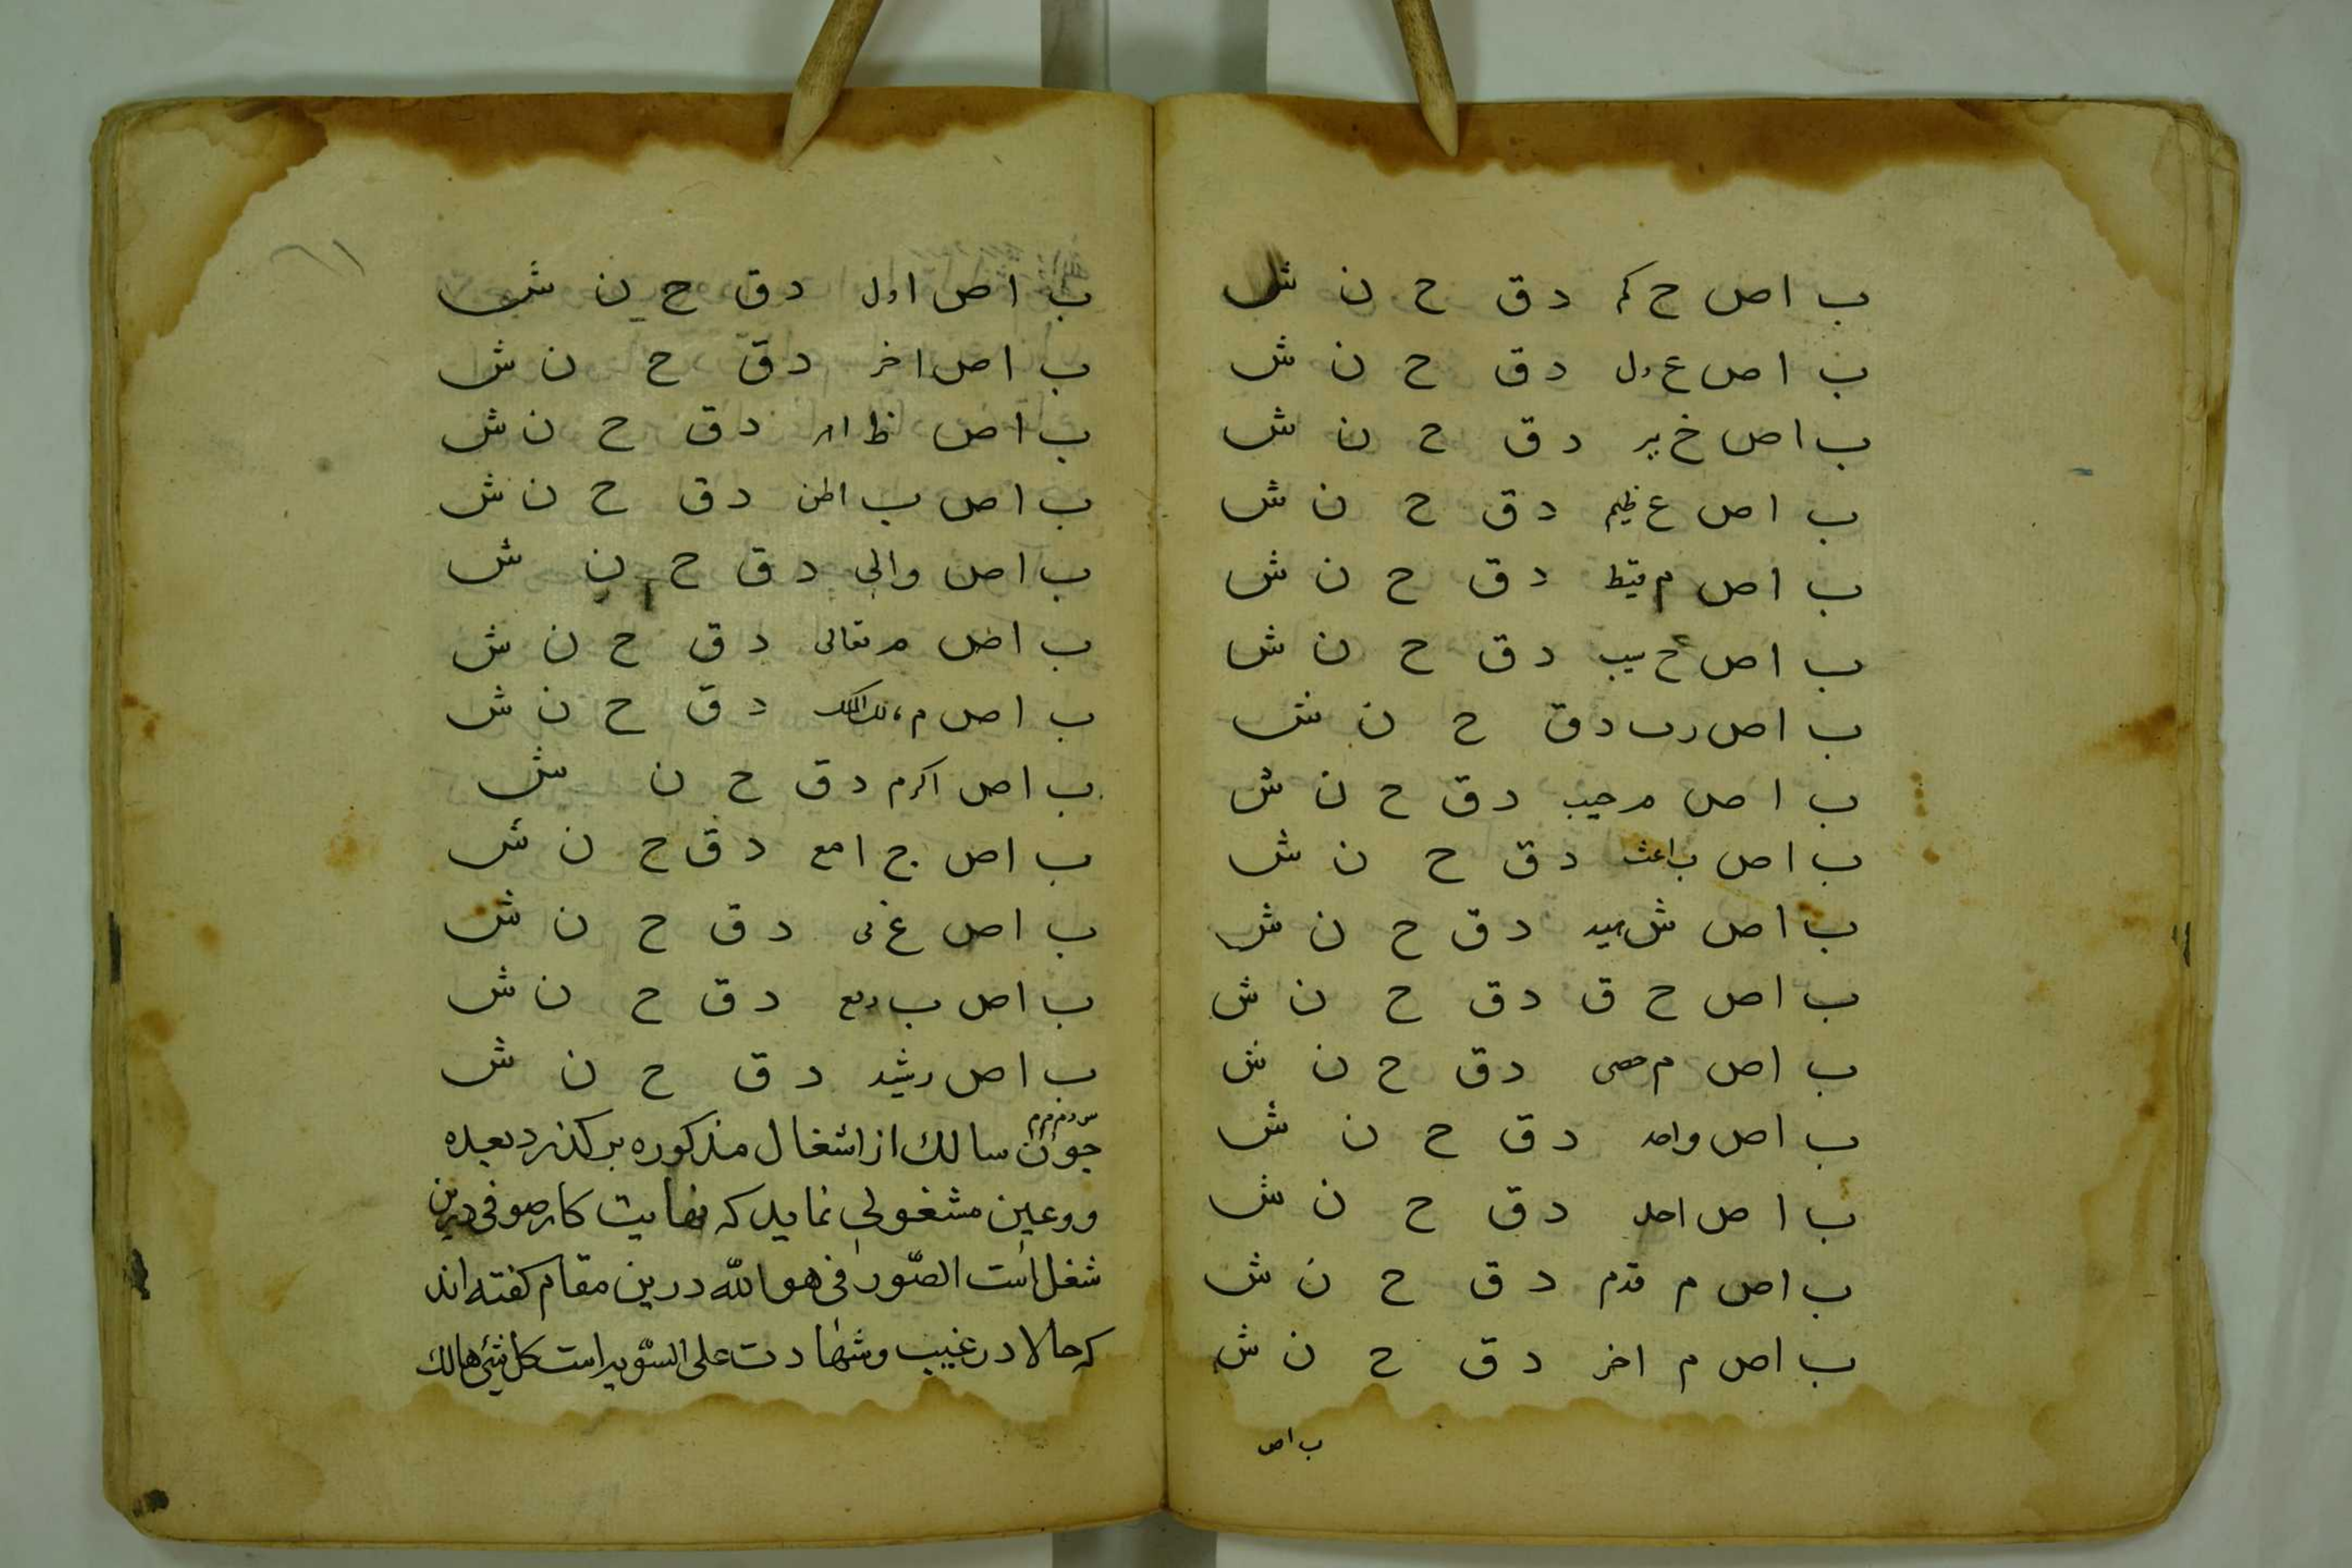 ب ا ص ح کم د ق ح ن ش
ب ا ص ع دل د ق ح ن ش
ب ا ص خ بیر د ق ح ن ش
ب ا ص ع ظیم د ق ح ن ش
ب ا ص م قیط د ق ح ن ش
ب ا ص ح سیب د ق ح ن ش
ب ا ص رب د ق ح ن ش
ب ا ص م جیب د ق ح ن ش
ب ا ص ب اعث د ق ح ن ش
ب ا ص ش هید د ق ح ن ش
ب ا ص ح ق د ق ح ن ش
ب ا ص م حصی د ق ح ن ش
ب ا ص واحد د ق ح ن ش
ب ا ص احد د ق ح ن ش
ب ا ص م قدم د ق ح ن ش
ب ا ص م اخر د ق ح ن ش
ب ا ص
ب ا ص اول د ق ح ن ش
ب ا ص اخر د ق ح ن ش
ب ا ص ظ اهر د ق ح ن ش
ب ا ص ب اطن د ق ح ن ش
ب ا ص والی د ق ح ن ش
ب ا ص م تعالی د ق ح ن ش
ب ا ص م الک الملک د ق ح ن ش
ب ا ص اکرم د ق ح ن ش
ب ا ص ج امع د ق ح ن ش
ب ا ص غ نی د ق ح ن ش
ب ا ص ب دیع د ق ح ن ش
ب ا ص رشید د ق ح ن ش
چون سالك از اشغال مذكوره بر كذرد بعده
و وعین مشغولی نماید که نهایت کار صوفی درین
شغل است الصور فی هو الله درین مقام کفته اند
که حالا در غیب و شهادت علی السویه است کل شیٔ هالك